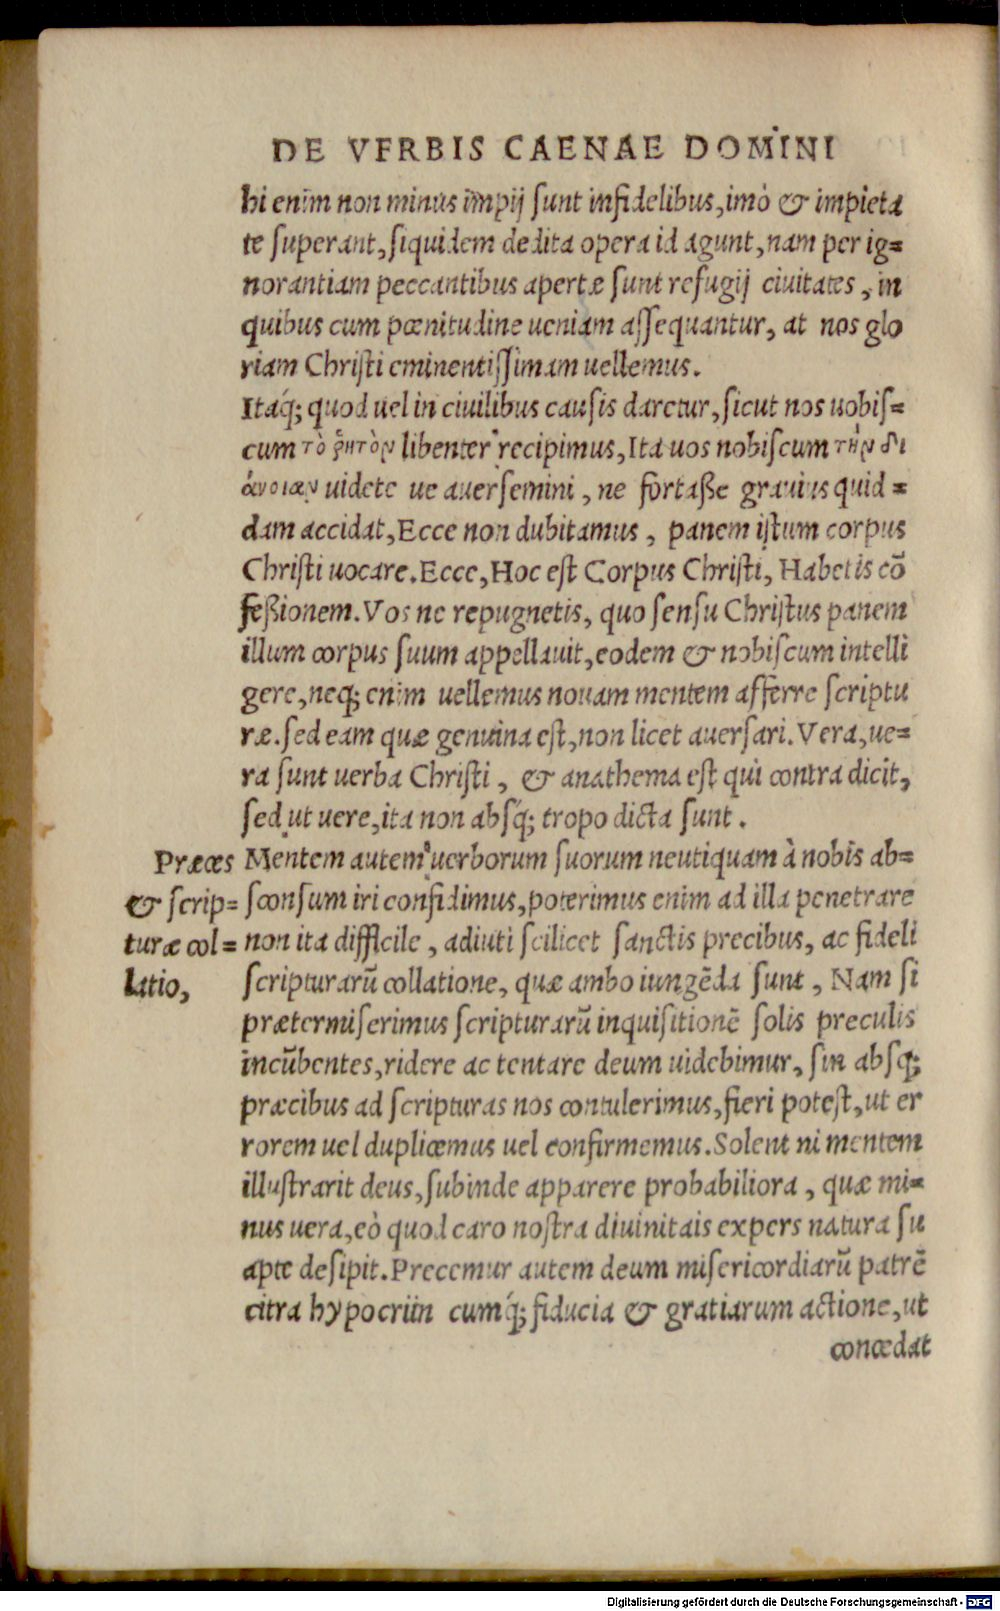 DE VERBIS CAENAE DOMINI
hi enim non minus impij sunt infidelibus, imò & impieta
te superant, siquidem dedita opera id agunt, nam per ig=
norantiam peccantibus apertæ sunt refugij ciuitates, in
quibus cum pœnitudine ueniam assequantur, at nos glo
riam Christi eminentissimam uellemus.
Itaq́; quod uel in ciuilibus causis daretur, sicut nos uobis=
cum τὸ ῥητὸν libenter recipimus, Ita uos nobiscum τὴν δι
άνοιαν uidete ue auersemini, ne fortaße grauius quid=
dam accidat, Ecce non dubitamus, panem istum corpus
Christi uocare. Ecce, Hoc est Corpus Christi, Habetis cō
feßionem. Vos ne repugnetis, quo sensu Christus panem
illum corpus suum appellauit, eodem & nobiscum intelli
gere, neq; enim uellemus nouam mentem afferre scriptu
ræ. sed eam quæ genuina est, non licet auersari. Vera, ue=
ra sunt uerba Christi, & anathema est qui contra dicit,
sed ut uere, ita non absq́; tropo dicta sunt.
Præces
& scrip=
turæ col=
latio,
Mentem autem uerborum suorum neutiquam à nobis ab=
sconsum iri confidimus, poterimus enim ad illa penetrare
non ita difficile, adiuti scilicet sanctis precibus, ac fideli
scripturarū collatione, quæ ambo iungēda sunt, Nam si
prætermiserimus scripturarū inquisitionē solis preculis
incūbentes, ridere ac tentare deum uidebimur, sin absq;
præcibus ad scripturas nos contulerimus, fieri potest, ut er
rorem uel duplicemus uel confirmemus. Solent ni mentem
illustrarit deus, subinde apparere probabiliora, quæ mi=
nus uera, eò quod caro nostra diuinitais expers natura su
apte desipit. Precemur autem deum misericordiarū patrē
citra hypocriin cumq́; fiducia & gratiarum actione, ut
concedat
Digitalisierung gefördert durch die Deutsche Forschungsgemeinschaft - DFG